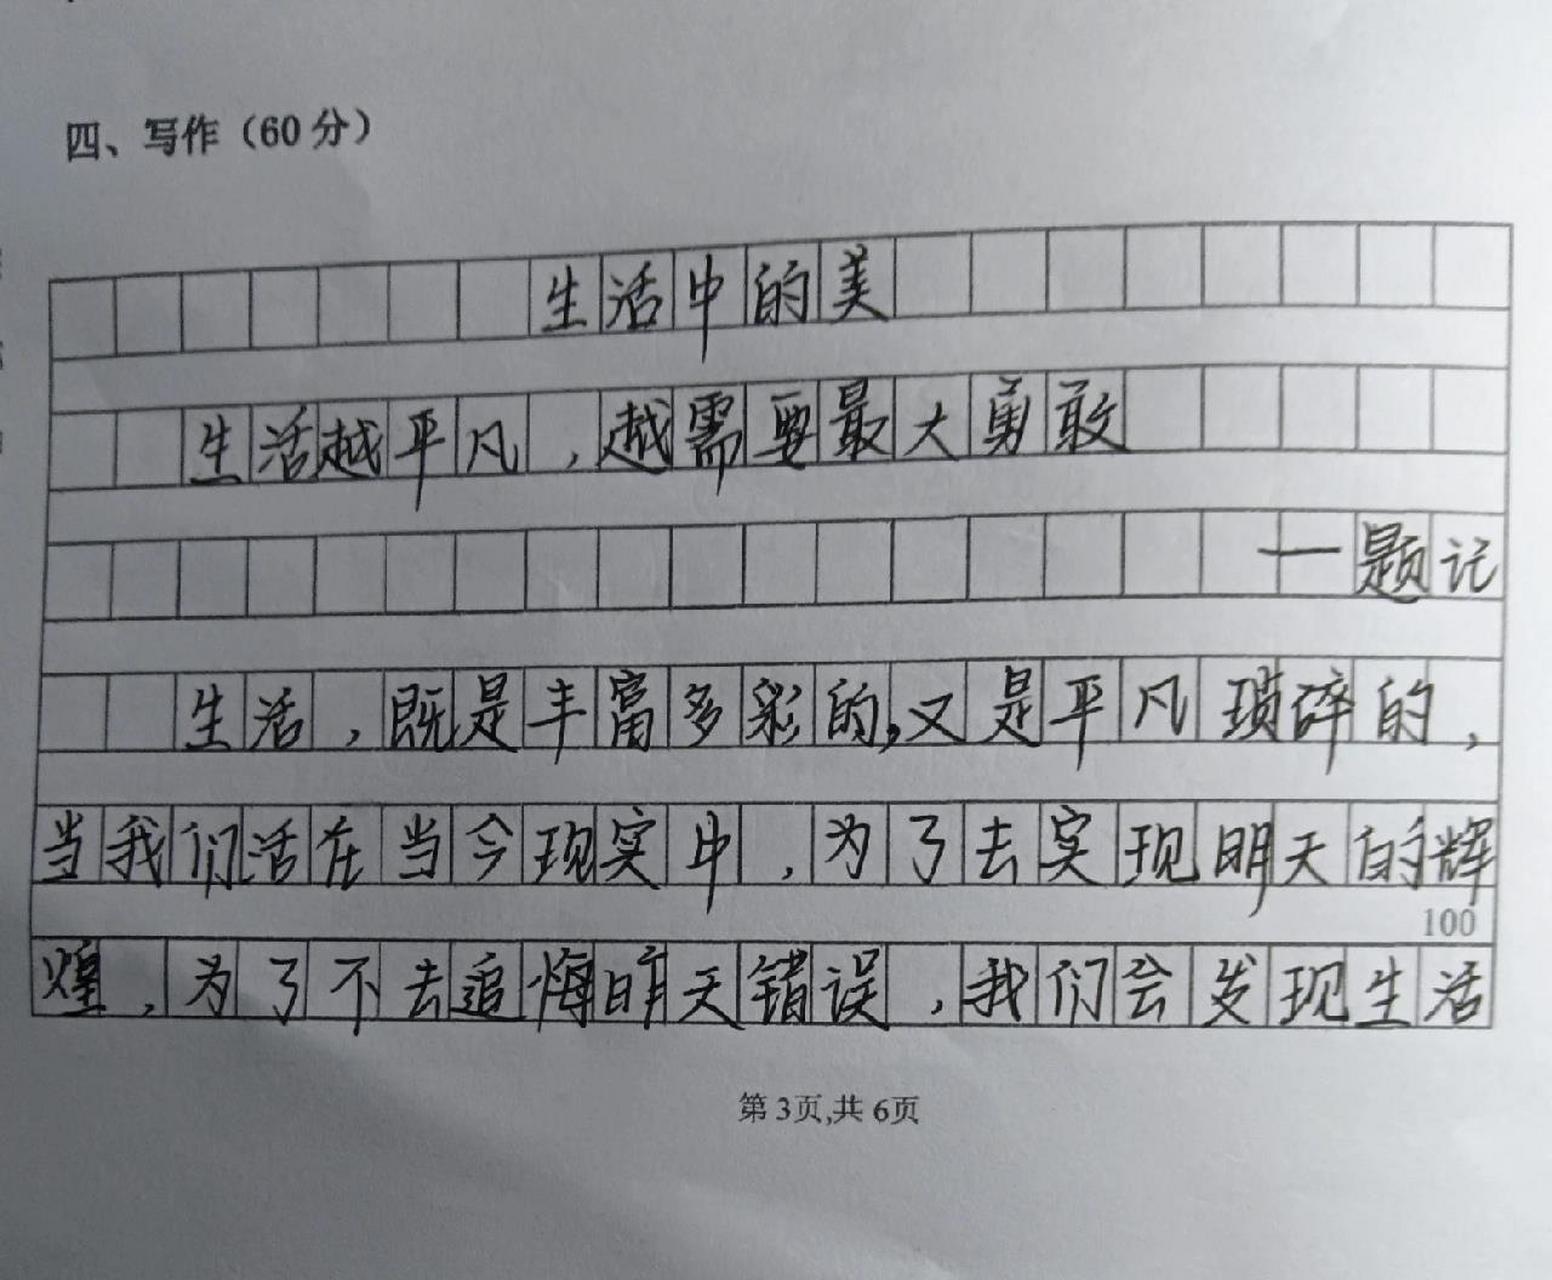 四、写作（60分）
生活中的美
生活越平凡，越需要最大勇敢
—题记
生活，既是丰富多彩的，又是平凡琐碎的，
当我们活在当今现实中，为了去实现明天的辉
100
煌，为了不去追悔昨天错误，我们会发现生活
第3页,共6页